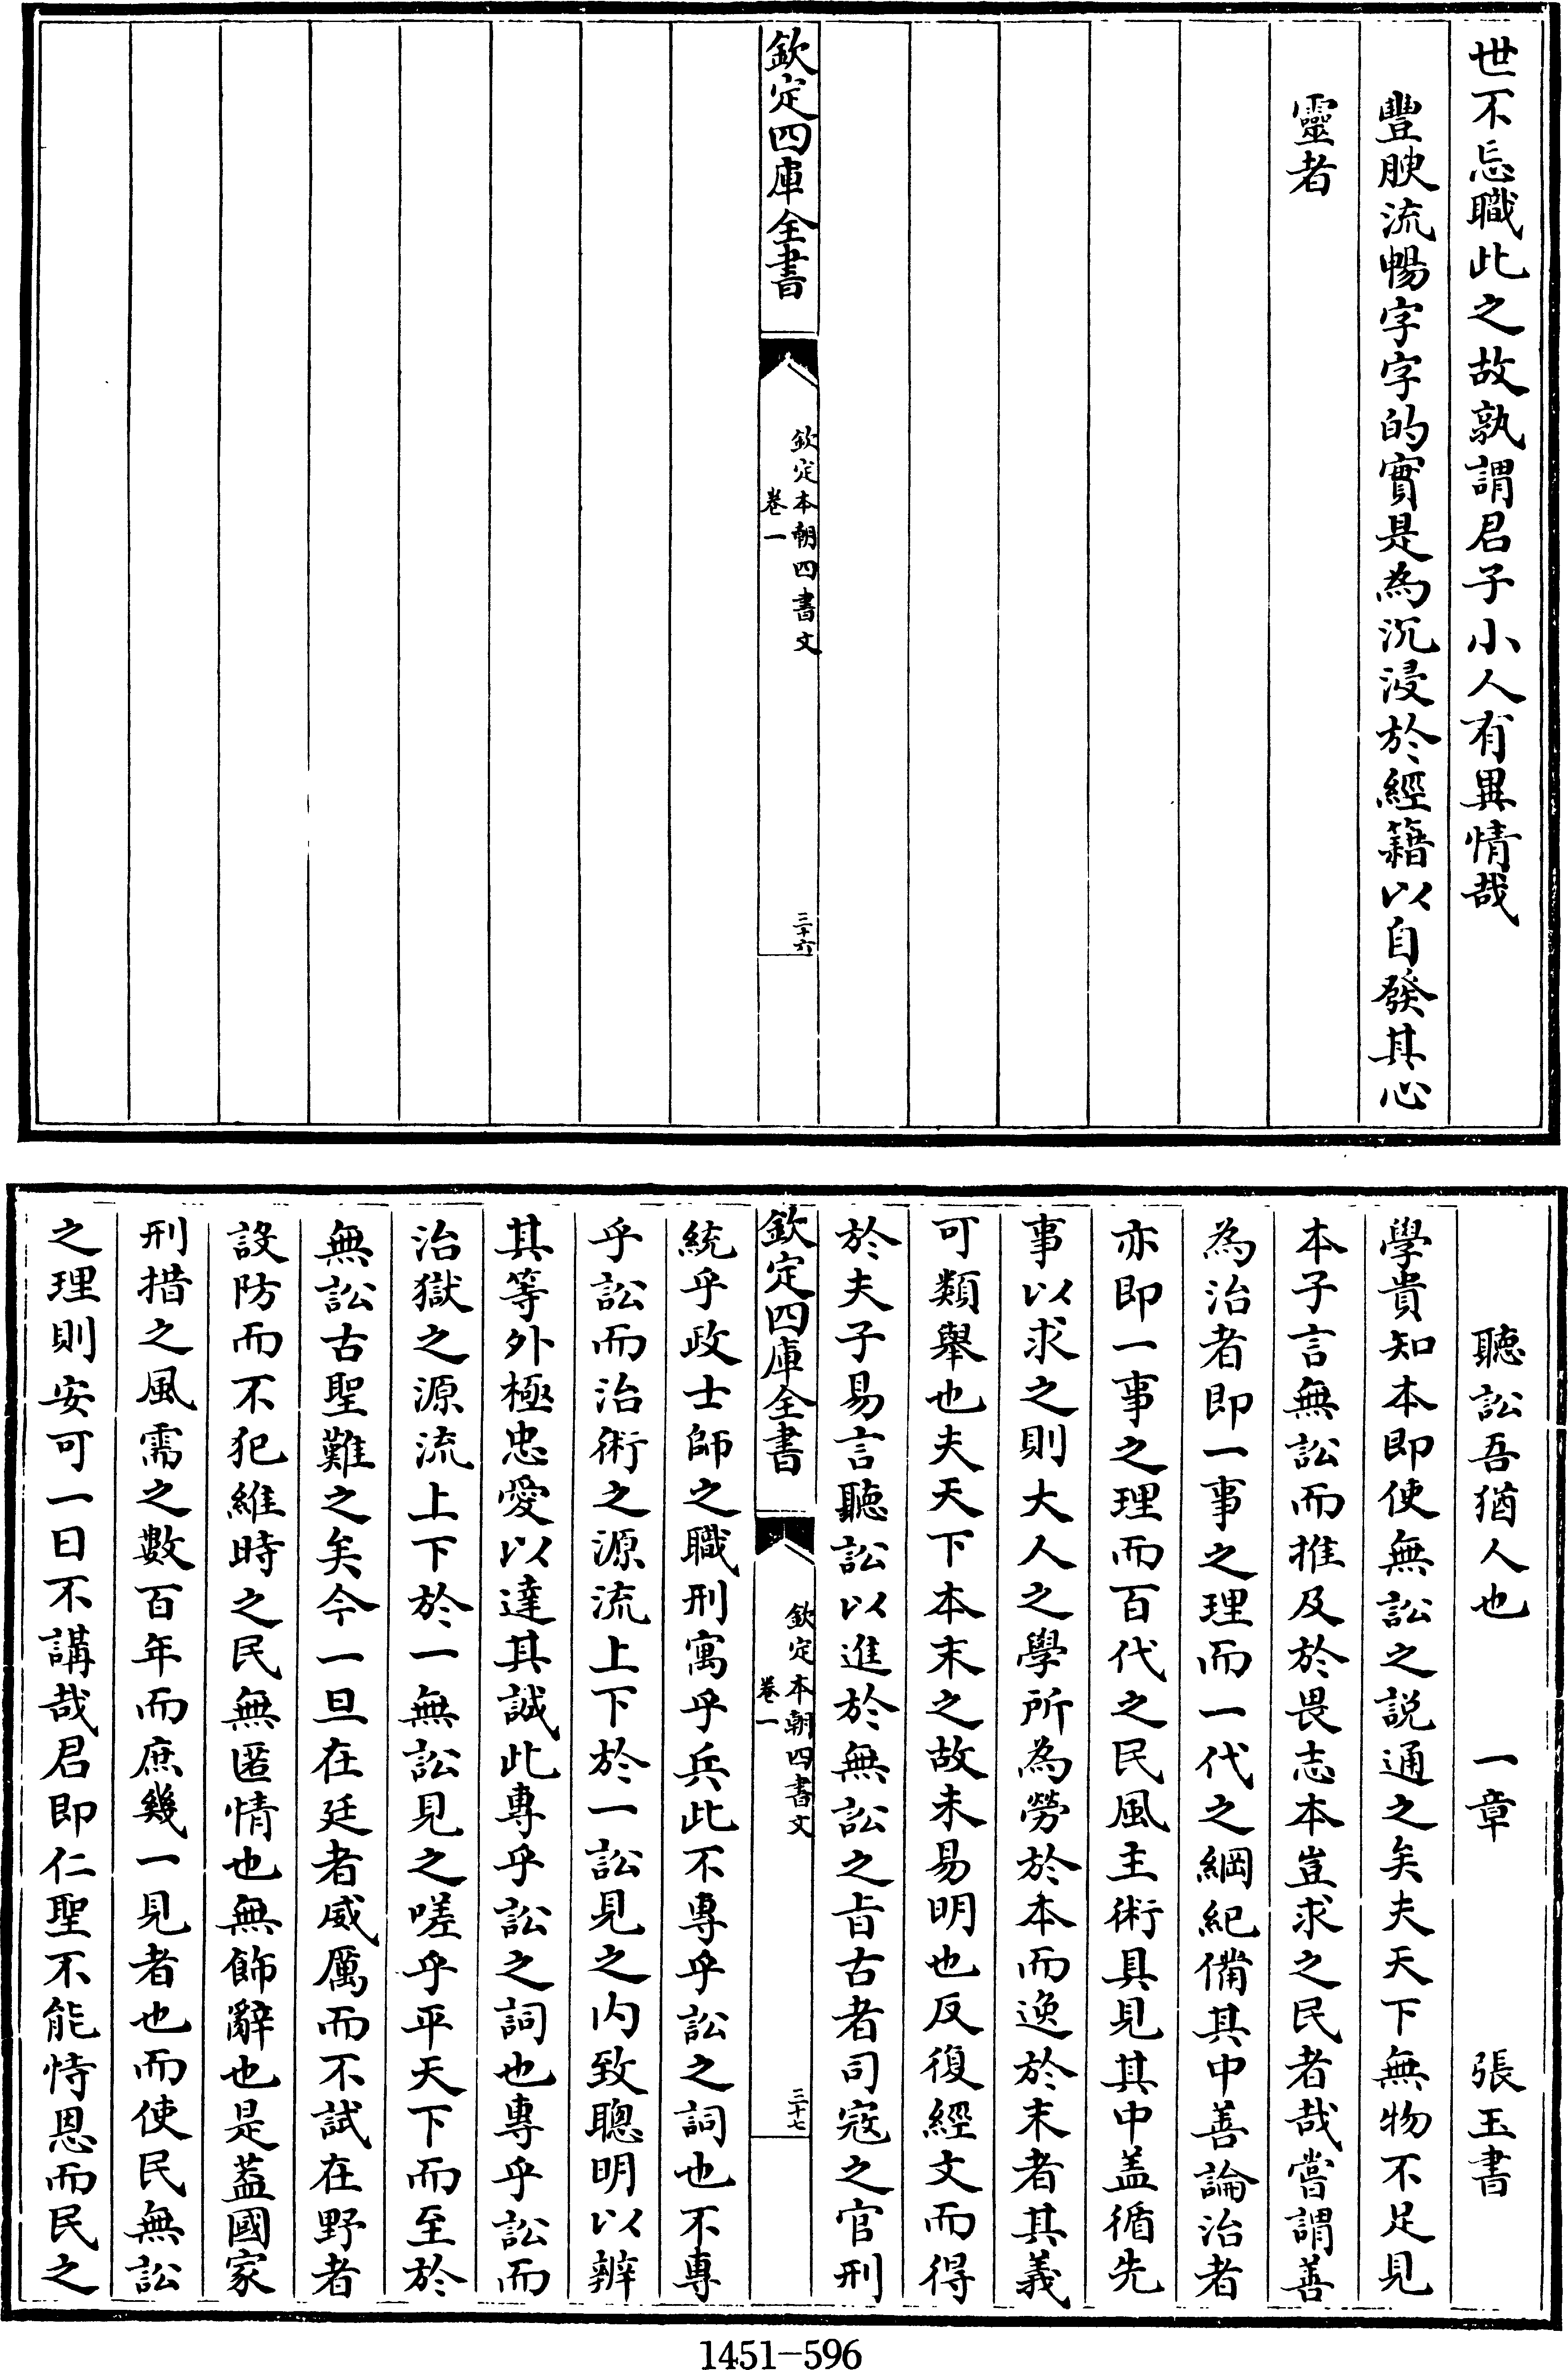 世不忘職此之故孰謂君子小人有異情哉
豐腴流暢字字的實是為沉浸於經籍以自發其心
靈者
欽定四庫全書
欽定本朝四書文
卷一
三十六
聽訟吾猶人也 一章 張玉書
學貴知本即使無訟之說通之矣夫天下無物不足見
本子言無訟而推及於畏志本豈求之民者哉嘗謂善
為治者即一事之理而一代之綱紀備其中善論治者
亦即一事之理而百代之民風主術具見其中盖循先
事以求之則大人之學所為勞於本而逸於末者其義
可類舉也夫天下本末之故未易明也反復經文而得
於夫子易言聽訟以進於無訟之旨古者司寇之官刑
欽定四庫全書
欽定本朝四書文
卷一
三十七
統乎政士師之職刑寓乎兵此不專乎訟之詞也不專
乎訟而治術之源流上下於一訟見之内致聰明以辨
其等外極忠愛以達其誠此專乎訟之詞也專乎訟而
治獄之源流上下於一無訟見之嗟乎平天下而至於
無訟古聖難之矣今一旦在廷者威厲而不試在野者
設防而不犯維時之民無匿情也無飾辭也是葢國家
刑措之風需之數百年而庶幾一見者也而使民無訟
之理則安可一日不講哉君即仁聖不能恃恩而民之
1451-596